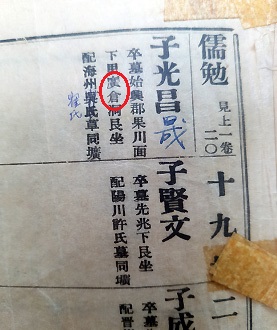 儒勉
見上一卷
二〇
十九
二
子光昌
晟
卒墓始興郡果川面
下里廣倉洞艮坐
配海州氏同壙
崔氏
子賢文
卒墓先兆下艮坐
配陽川許氏墓同壙
子成
卒墓
配晋